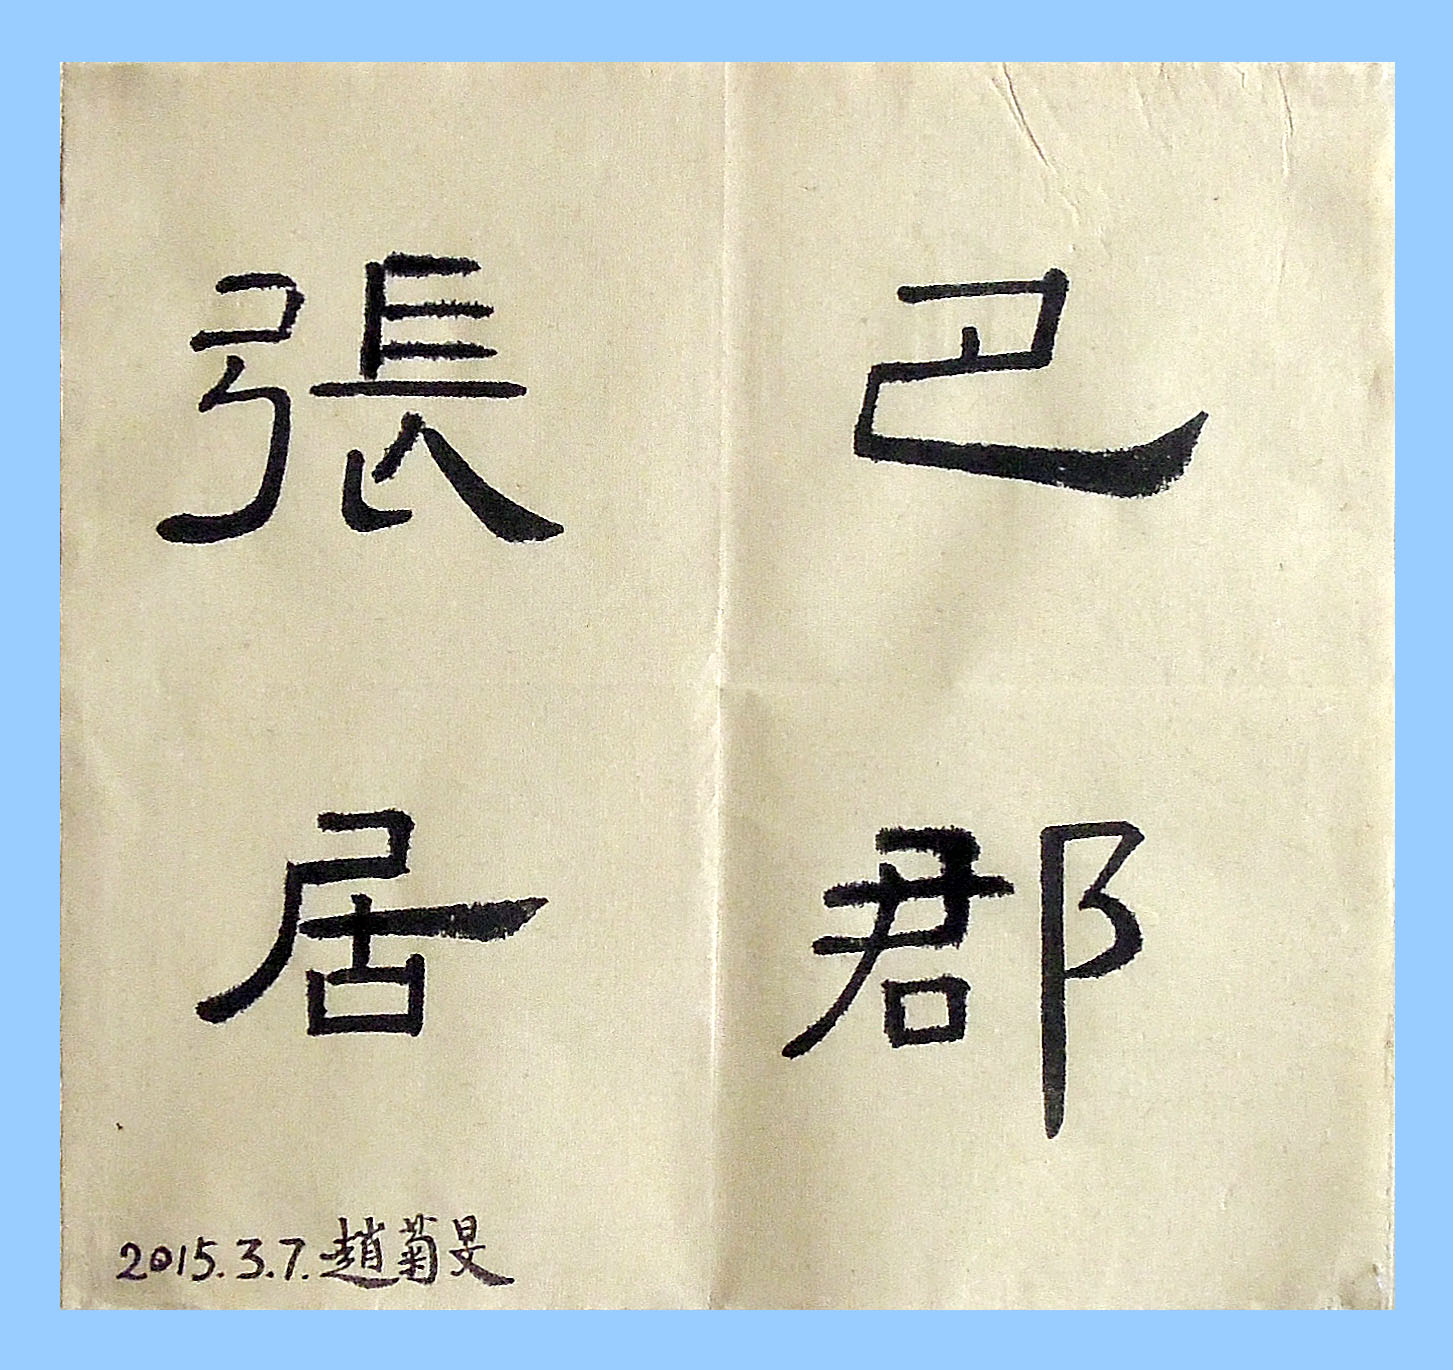 巴郡
張居
2015.3.7.趙菊旻